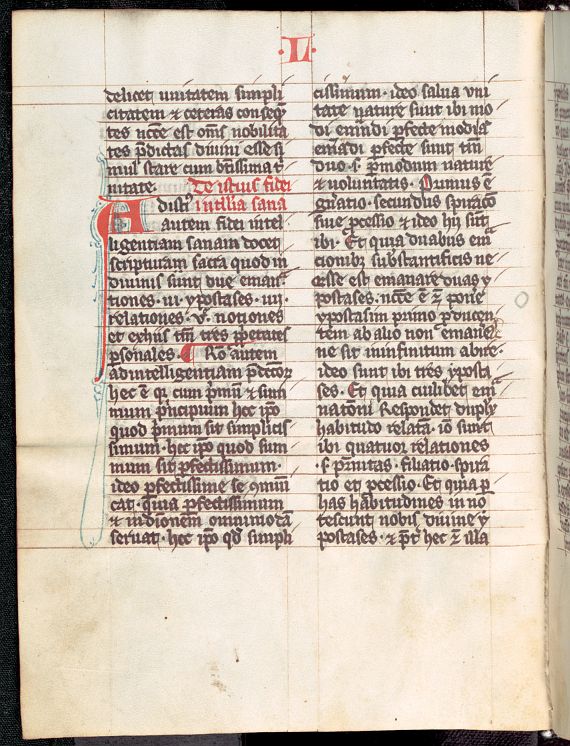 ·L·
delicet unitatem simpli
citatem ⁊ ceteras conseq̄n
tes nc̄c̄e est om̄s nobilita
tes p̄dictas diuini esse si
mul stare cum btissima t̄
nitate. De istius fidei
intllīa sana
Ad istius
autem fidei intel
ligentiam sanam docet
scripturam sacra quod in
diuinis sunt due emana
tiones. iii. ypostases. iiii.
relationes. v. notiones
et ex hiis tm̄ tres ꝓprietates
ꝑsonales. Ro autem
ad intelligentiam p̄dc̄or
hec ē qr cum p̄mū ⁊ sum
mum principium hec ip̄o
quod primum sit simplicis
simum. hec ip̄o quod sum
mum sit ꝑfectissimum.
ideo ꝑfectissime se 9muni
cat. quia ꝑfectissimum
⁊ indiuisionem omnimodā
seruat. hec ip̄o qd̄ simpli
cissimum. ideo salua vni
tate nature sunt ibi mo
di emandi ꝑfecte modi aū
emādi ꝑfecte sunt tm̄
duo. s. ꝑ modum nature
⁊ uoluntatis. Primus ē
gn̄atio. secundus spiratio
siue ꝓcessio ⁊ ideo hii sūt
ibi. Et quia duabus ema
tionibꝫ substantificis ne
cesse est emanare duas y
postases. nc̄c̄e ē ⁊ pone
ypostasim primo ꝓducen
tem ab alio non emanē
ne sit in infinitum abire.
ideo sunt ibi tres yposta
ses. Et quia cuilibet ema
nationi Respondet duplx
habitudo relata. iō sunt
ibi quatuor relationes
.s. p̄rnitas. filiatio. spira
tio et ꝓcessio. Et quia ꝑ
has habitudines in no
tescunt nobis diuine y
postases. ⁊ p̄t̄ hec ⁊ illa